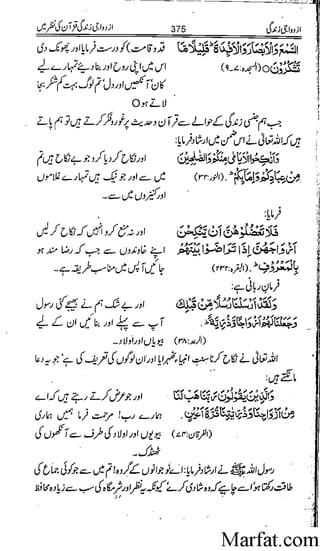 ازدواجی زندگی 375 ازدواجی زندگی قرآن کی نظر میں
السَّمْعَ وَالْاَبْصَارَ وَالْاَفْئِدَةَ ؕ قَلِيْلًا مَّا قدوقامت) کو درست فرمایا اور پھونک دی
تَشْكُرُوْنَ O (السجدہ: ۷-۹) اس میں اپنی روح اور بنا دیئے تمہارے لیے
کان آنکھیں اور دل، تم لوگ بہت کم شکر بجا
لاتے ہو O
جب ہم جنسی زندگی کے حوالے سے قرآن و حدیث پر غور و فکر کرتے ہیں تو ہم پاتے
ہیں کہ اللہ تعالیٰ نے اس ضمن میں ارشاد فرمایا:
وَاَنْكِحُوا الْاَيَامٰى مِنْكُمْ وَالصّٰلِحِيْنَ اور نکاح کر دیا کرو جو بے نکاح ہیں تم
مِنْ عِبَادِكُمْ وَاِمَآئِكُمْ ؕ (النور: ۳۲) میں سے اور جو نیک ہیں تمہارے غلاموں
اور کنیزوں میں سے۔
فرمایا:
فَلَا تَعْضُلُوْهُنَّ اَنْ يَّنْكِحْنَ اور نہ منع کرو انہیں کہ نکاح کر لیں
اَزْوَاجَهُنَّ اِذَا تَرَاضَوْا بَيْنَهُمْ اپنے خاوندوں سے جب کہ رضا مند ہو
بِالْمَعْرُوْفِ ؕ (البقرہ: ۲۳۲) جائیں آپس میں مناسب طریقہ سے۔
فرمان ربانی ہے:
وَلَقَدْ اَرْسَلْنَا رُسُلًا مِّنْ قَبْلِكَ اور بے شک ہم نے بھیجے کئی رسول
وَجَعَلْنَا لَهُمْ اَزْوَاجًا وَّذُرِّيَّةً ؕ آپ سے پہلے اور بنائیں ان کے لیے
(الرعد: ۳۸) بیویاں اور اولاد۔
اللہ تعالیٰ نے نکاح کرنا سنتِ انبیاء ٹھہرایا اور ان لوگوں کی تعریف کی ہے جو یہ دعا
مانگتے ہیں:
وَالَّذِيْنَ يَقُوْلُوْنَ رَبَّنَا هَبْ لَنَا اور جو عرض کرتے رہتے ہیں کہ اے
مِنْ اَزْوَاجِنَا وَذُرِّيّٰتِنَا قُرَّةَ اَعْيُنٍ ہمارے رب! مرحمت فرما ہمیں ہماری
(الفرقان: ۷۴) بیویوں اور اولاد کی طرف سے آنکھوں کی
ٹھنڈک۔
رسول اللہ ﷺ نے ارشاد فرمایا: اے نوجوانوں کے گروہ! تم میں سے جو کوئی جماع کی
طاقت رکھتا ہو اسے چاہیے کہ وہ شادی کرے کیونکہ یہ نظر اور شرمگاہ کی سب سے زیادہ محافظ
Marfat.com